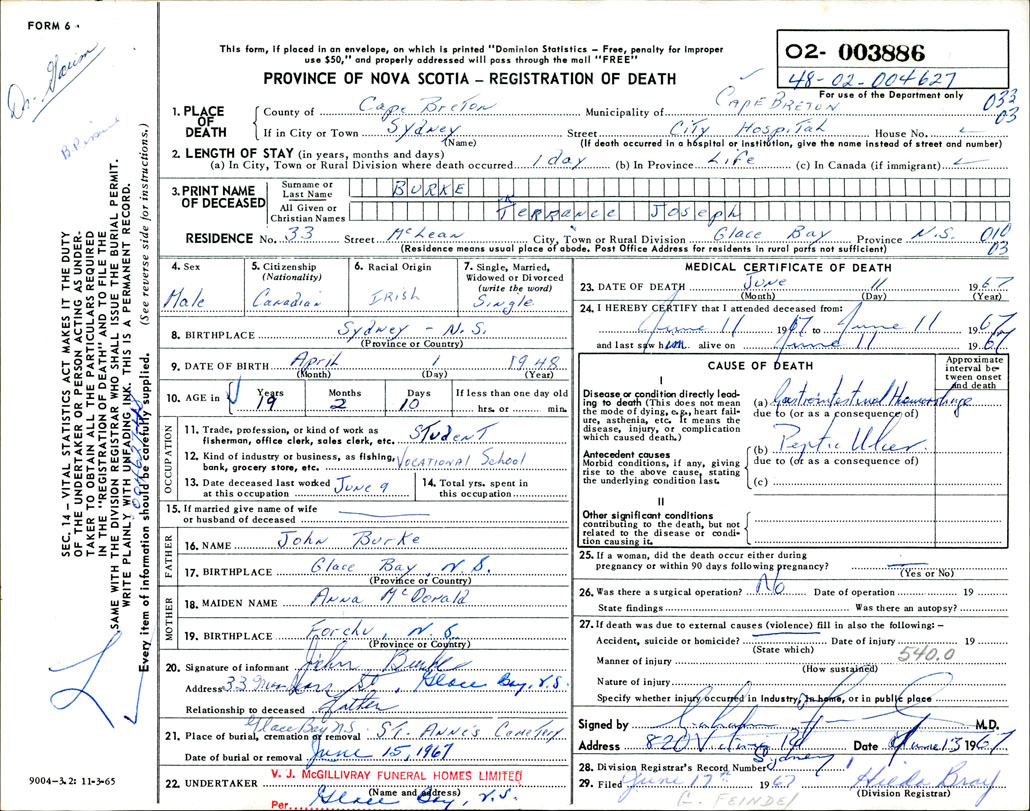 FORM 6
Dr.
This form, if placed in an envelope, on which is printed "Dominion Statistics – Free, penalty for improper
use $50," and properly addressed will pass through the mail "FREE"
PROVINCE OF NOVA SCOTIA – REGISTRATION OF DEATH
02- 003886
48-02-004627
For use of the Department only
033
03
1. PLACE OF DEATH
County of Cape Breton Municipality of CAPE BRETON
If in City or Town Sydney Street City Hospital House No.
(Name) (If death occurred in a hospital or institution, give the name instead of street and number)
2. LENGTH OF STAY (in years, months and days)
(a) In City, Town or Rural Division where death occurred 1 day (b) In Province Life (c) In Canada (if immigrant)
3. PRINT NAME OF DECEASED
Surname or Last Name BURKE
All Given or Christian Names Terrance Joseph
RESIDENCE No. 33 Street McLean City, Town or Rural Division Glace Bay Province N.S. 010
03
(Residence means usual place of abode. Post Office Address for residents in rural parts not sufficient)
4. Sex
Male
5. Citizenship
(Nationality)
Canadian
6. Racial Origin
IRISH
7. Single, Married,
Widowed or Divorced
(write the word)
Single
8. BIRTHPLACE Sydney - N.S.
(Province or Country)
9. DATE OF BIRTH April 1 1948
(Month) (Day) (Year)
10. AGE in
Years Months Days If less than one day old
19 2 10 hrs. or min.
OCCUPATION
11. Trade, profession, or kind of work as
fisherman, office clerk, sales clerk, etc. STUDENT
12. Kind of industry or business, as fishing,
bank, grocery store, etc. VOCATIONAL School
13. Date deceased last worked
at this occupation June 9
14. Total yrs. spent in
this occupation
15. If married give name of wife
or husband of deceased
FATHER
16. NAME John Burke
17. BIRTHPLACE Glace Bay, N.S.
(Province or Country)
MOTHER
18. MAIDEN NAME Anna McDonald
19. BIRTHPLACE Forchu, N.S.
(Province or Country)
20. Signature of informant John Burke
Address 33 St, Glace Bay, N.S.
Relationship to deceased Father
Glace Bay N.S.
21. Place of burial, cremation or removal St. Anne's Cemetery
Date of burial or removal June 15, 1967
22. UNDERTAKER V. J. McGILLIVRAY FUNERAL HOMES LIMITED
(Name and address)
Per Glace Bay, N.S.
MEDICAL CERTIFICATE OF DEATH
23. DATE OF DEATH June 11 1967
(Month) (Day) (Year)
24. I HEREBY CERTIFY that I attended deceased from:
June 11 1967 to June 11 1967
and last saw him alive on June 11 1967
CAUSE OF DEATH
Approximate
interval be-
tween onset
and death
I
Disease or condition directly lead-
ing to death (This does not mean
the mode of dying, e.g., heart fail-
ure, asthenia, etc. It means the
disease, injury, or complication
which caused death.)
(a) Gastrointestinal Hemorrhage
due to (or as a consequence of)
Antecedent causes
Morbid conditions, if any, giving
rise to the above cause, stating
the underlying condition last.
(b) Peptic Ulcer
due to (or as a consequence of)
(c)
II
Other significant conditions
contributing to the death, but not
related to the disease or condi-
tion causing it.
25. If a woman, did the death occur either during
pregnancy or within 90 days following pregnancy?
(Yes or No)
26. Was there a surgical operation? No Date of operation 19
State findings Was there an autopsy?
27. If death was due to external causes (violence) fill in also the following: –
Accident, suicide or homicide? Date of injury 19
(State which) 540.0
Manner of injury
(How sustained)
Nature of injury
Specify whether injury occurred in Industry, in home, or in public place
Signed by M.D.
Address 820 Victoria Rd Date June 13 1967
Sydney
28. Division Registrar's Record Number
29. Filed June 17th 1967 Hilda Bray
(Division Registrar)
SEC. 14 – VITAL STATISTICS ACT MAKES IT THE DUTY
OF THE UNDERTAKER OR PERSON ACTING AS UNDER-
TAKER TO OBTAIN ALL THE PARTICULARS REQUIRED
IN THE "REGISTRATION OF DEATH" AND TO FILE THE
SAME WITH THE DIVISION REGISTRAR WHO SHALL ISSUE THE BURIAL PERMIT.
WRITE PLAINLY WITH UNFADING INK. THIS IS A PERMANENT RECORD.
Every item of information should be carefully supplied. (See reverse side for instructions.)
9004–3.2: 11-3-65